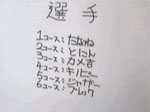 選手
1コース:たなね
2コース:とにん
3コース:カメ吉
4コース:キルビー
5コース:ジャガー
6コース:ブレック